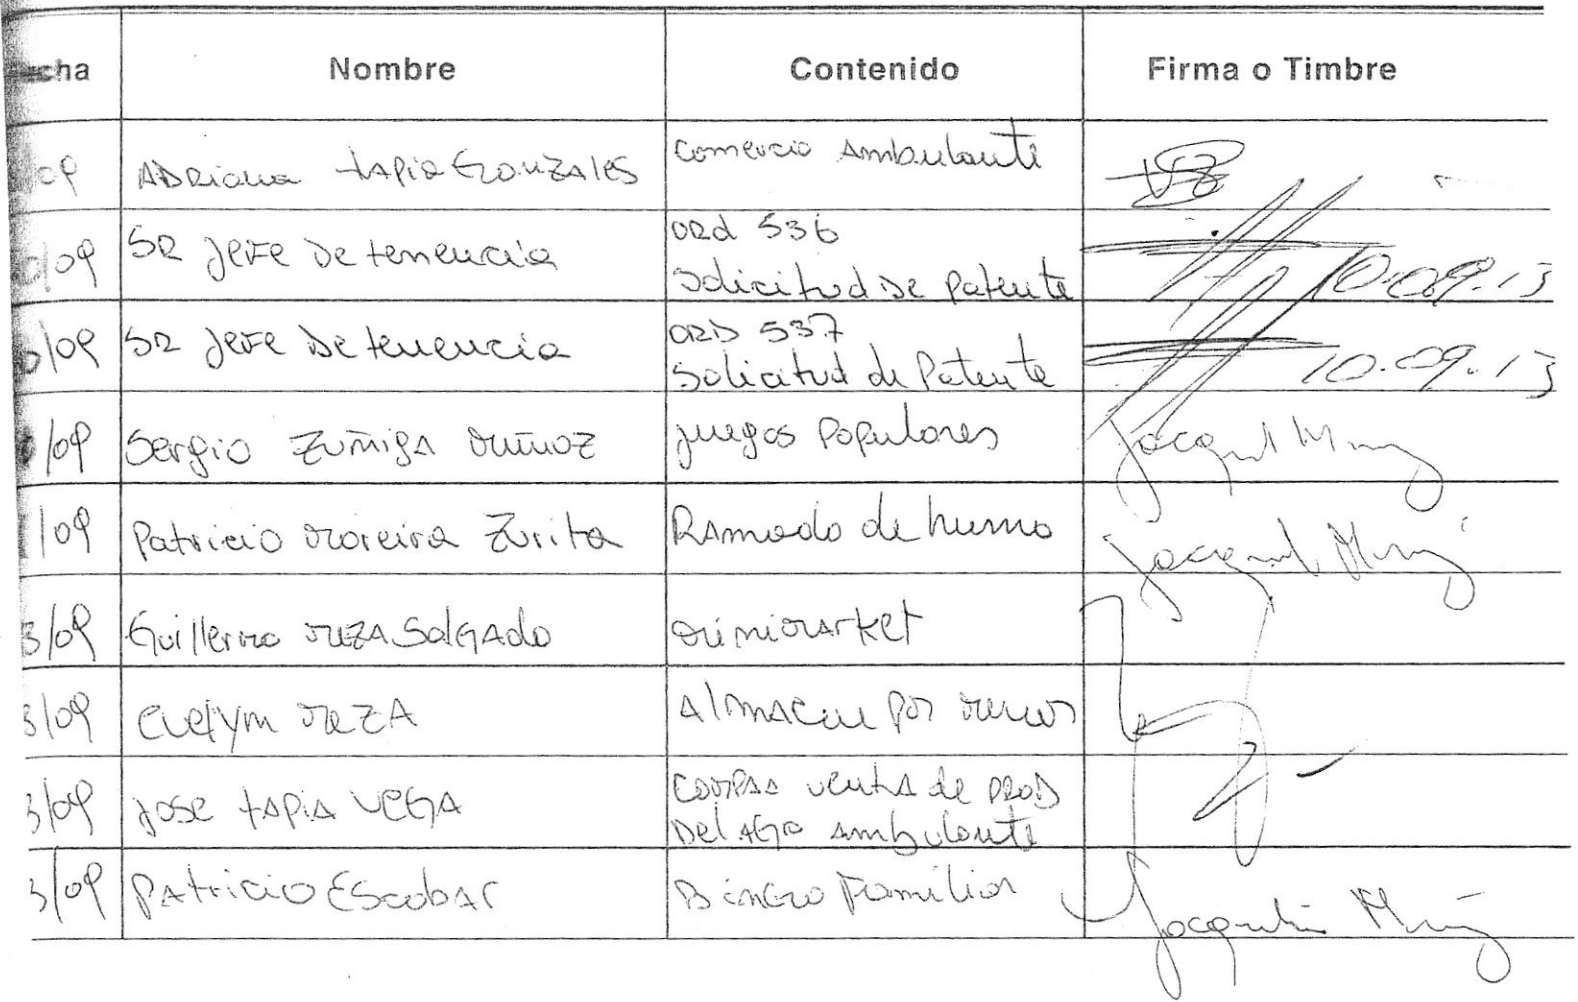 cha Nombre Contenido Firma o Timbre
09 ADRiana tapia GonZAles Comercio Ambulante
/09 SR Jefe De tenencia ORd 536
Solicitud De Patente 10.09.13
/09 SR Jefe De tenencia ORD 537
Solicitud de Patente 10.09.13
/09 Sergio Zuñiga muñoz Juegos Populares
/09 Patricio moreira Zurita Ramada de humo
3/09 Guillermo mezA SalGAdo minimarket
3/09 Evelyn mezA AlmAcen por menor
3/09 Jose tapia VEGA Compra ventA de PROD
Del AGro Ambulante
3/09 PAtricio Escobar BinGo Familiar